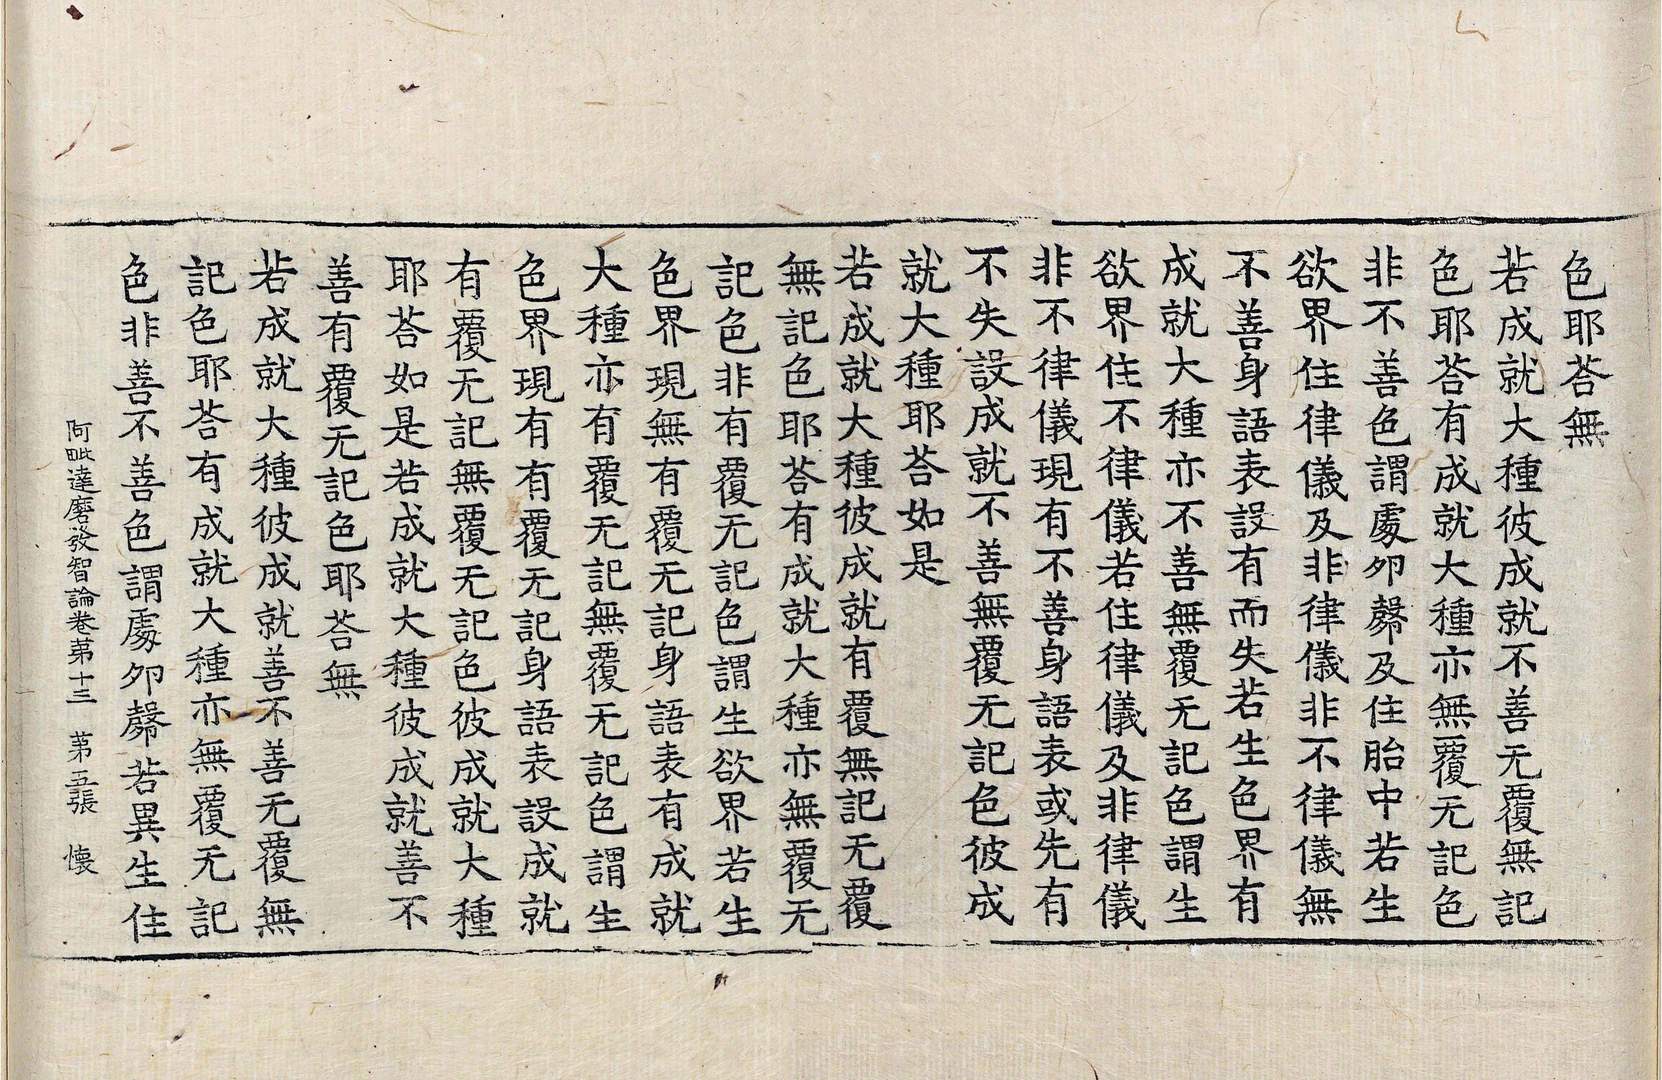 色耶荅無
若成就大種彼成就不善无覆無記
色耶荅有成就大種亦無覆无記色
非不善色謂處卵㲉及住胎中若生
欲界住律儀及非律儀非不律儀無
不善身語表設有而失若生色界有
成就大種亦不善無覆无記色謂生
欲界住不律儀若住律儀及非律儀
非不律儀現有不善身語表或先有
不失設成就不善無覆无記色彼成
就大種耶荅如是
若成就大種彼成就有覆無記无覆
無記色耶荅有成就大種亦無覆无
記色非有覆无記色謂生欲界若生
色界現無有覆无記身語表有成就
大種亦有覆无記無覆无記色謂生
色界現有有覆无記身語表設成就
有覆无記無覆无記色彼成就大種
耶荅如是若成就大種彼成就善不
善有覆无記色耶荅無
若成就大種彼成就善不善无覆無
記色耶荅有成就大種亦無覆无記
色非善不善色謂處卵㲉若異生住
阿毗達磨發智論卷苐十三 苐五張 懷